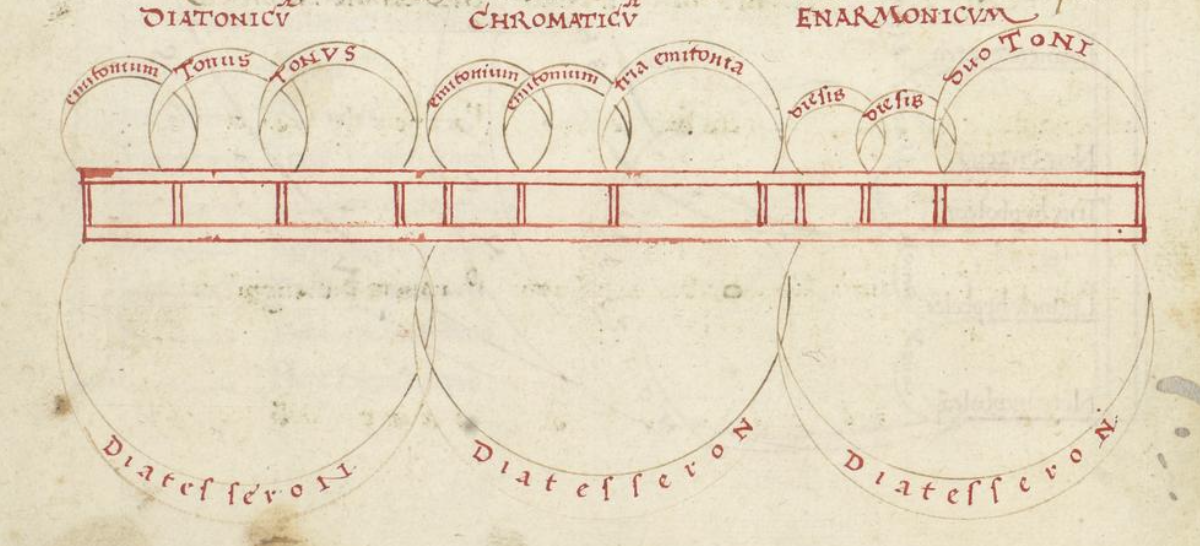 DIATONICV̄ CHROMATICV̄ ENARMONICVM
emitonium Tonus TONVS emitonium emitonium tria emitonia diesis diesis duo TONI
DiatesseroN DiatesseroN DiatesseroN